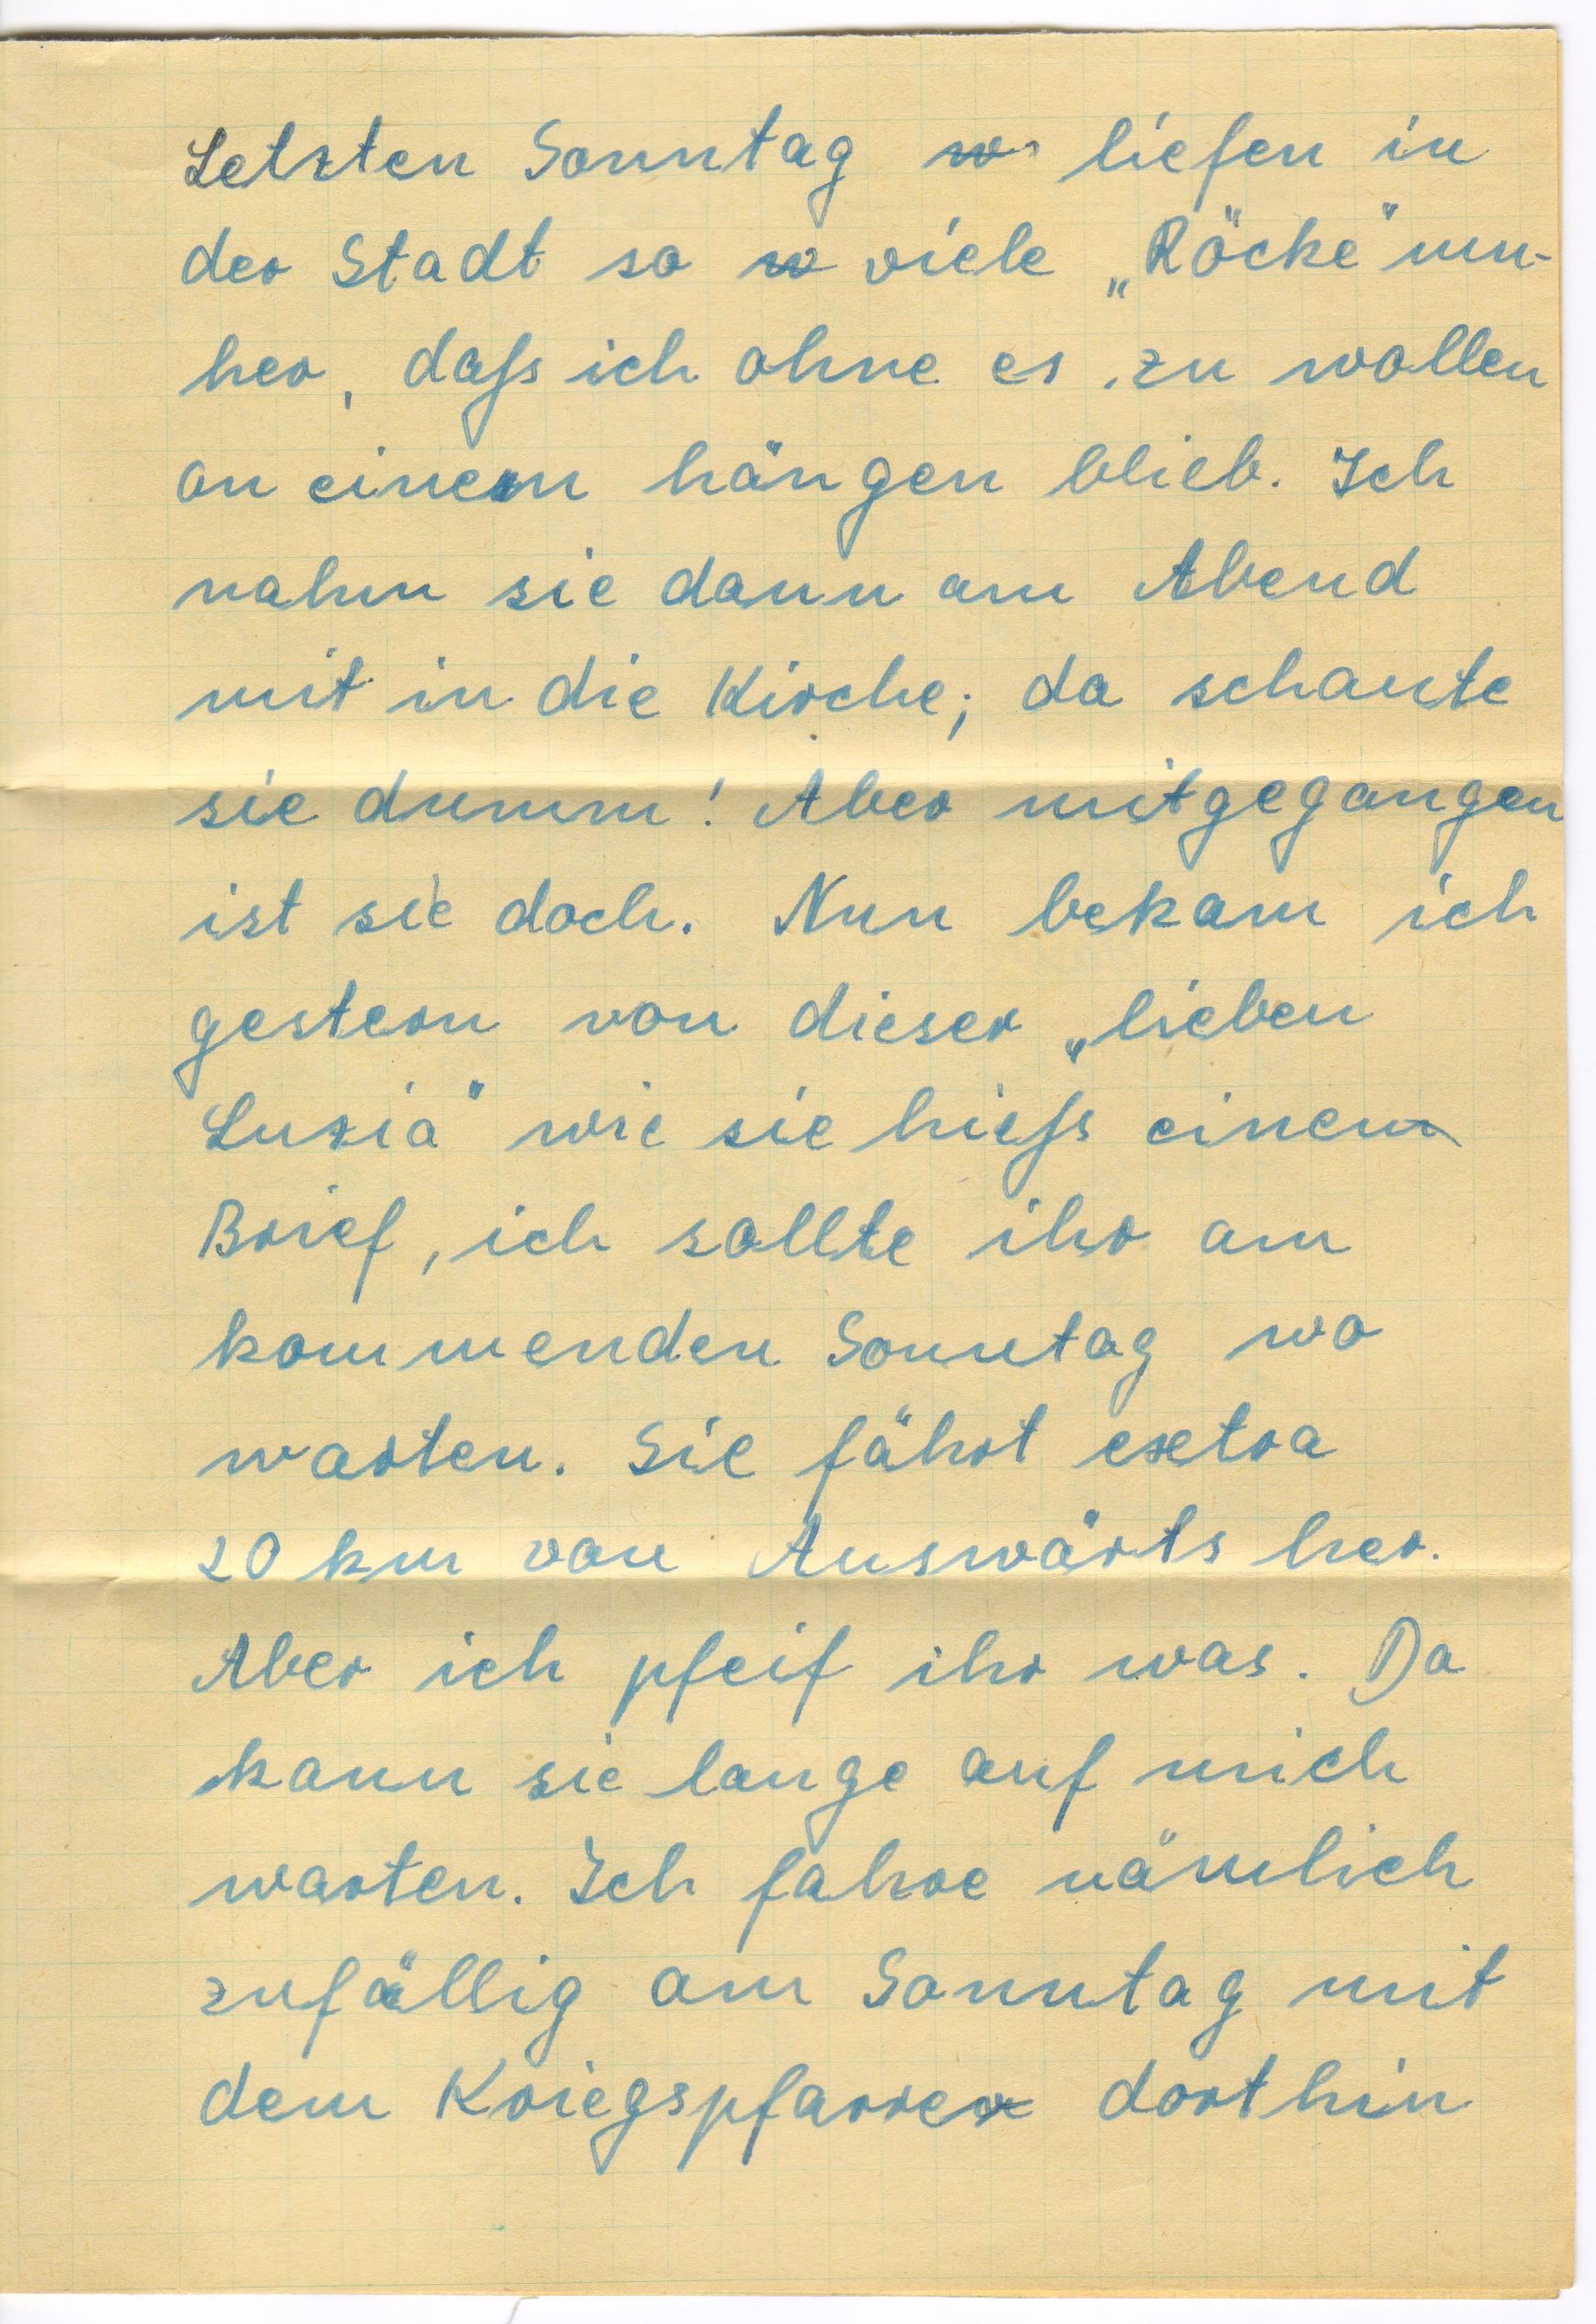 Letzten Sonntag liefen in
der Stadt so viele „Röcke" um-
her, daß ich ohne es zu wollen
an einem hängen blieb. Ich
nahm sie dann am Abend
mit in die Kirche; da schaute
sie dumm! Aber mitgegangen
ist sie doch. Nun bekam ich
gestern von dieser „lieben
Luzia" wie sie hieß einen
Brief, ich sollte ihr am
kommenden Sonntag wo
warten. Sie fährt extra
20 km von Auswärts her.
Aber ich pfeif ihr was. Da
kann sie lange auf mich
warten. Ich fahre nämlich
zufällig am Sonntag mit
dem Kriegspfarrer dorthin